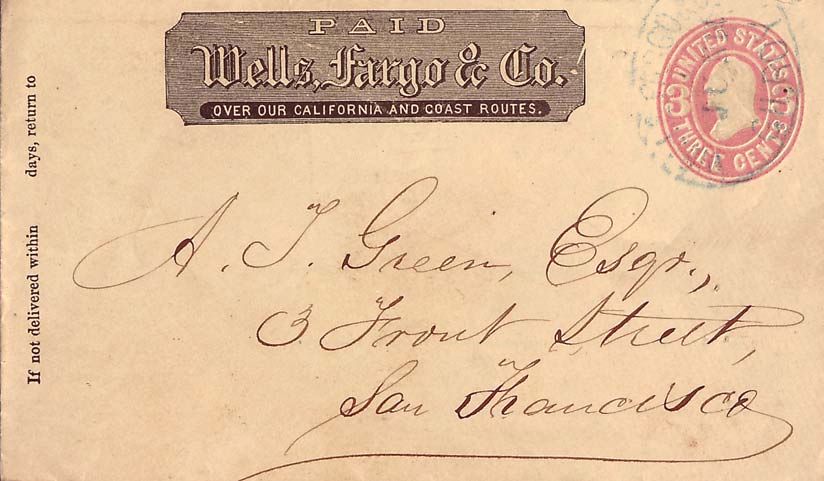 PAID
Wells, Fargo & Co.
OVER OUR CALIFORNIA AND COAST ROUTES.
UNITED STATES
THREE CENTS
3 3
If not delivered within days, return to
A. J. Green, Esqr.,
3 Front Street,
San Francisco